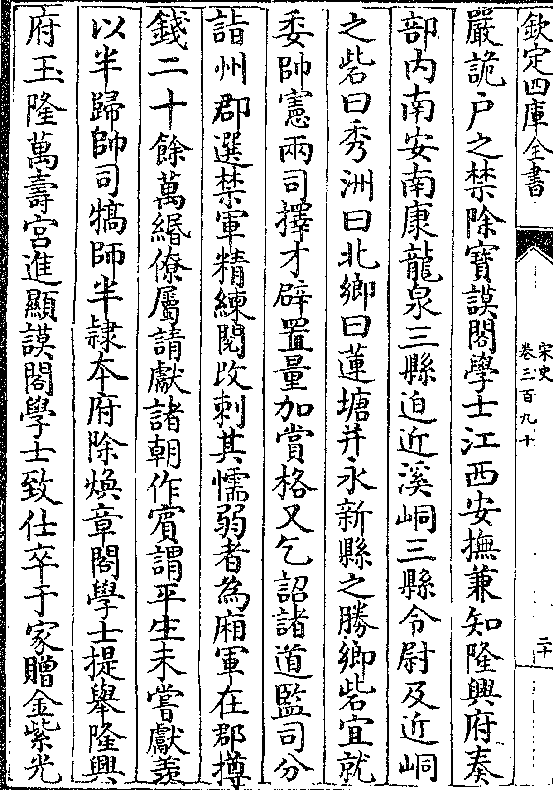 欽定四庫全書
宋史
卷三百九十
二十
嚴詭户之禁除寶謨閣學士江西安撫兼知隆興府奏
部内南安南康龍泉三縣迫近溪峒三縣令尉及近峒
之砦曰秀洲曰北鄉曰蓮塘并永新縣之勝鄉砦宜就
委帥憲兩司擇才辟置量加賞格又乞詔諸道監司分
詣州郡選禁軍精練閲改刺其懦弱者為廂軍在郡撙
錢二十餘萬緡僚屬請獻諸朝作賓謂平生未嘗獻羨
以半歸帥司犒師半隸本府除煥章閣學士提舉隆興
府玉隆萬壽宮進顯謨閣學士致仕卒于家贈金紫光